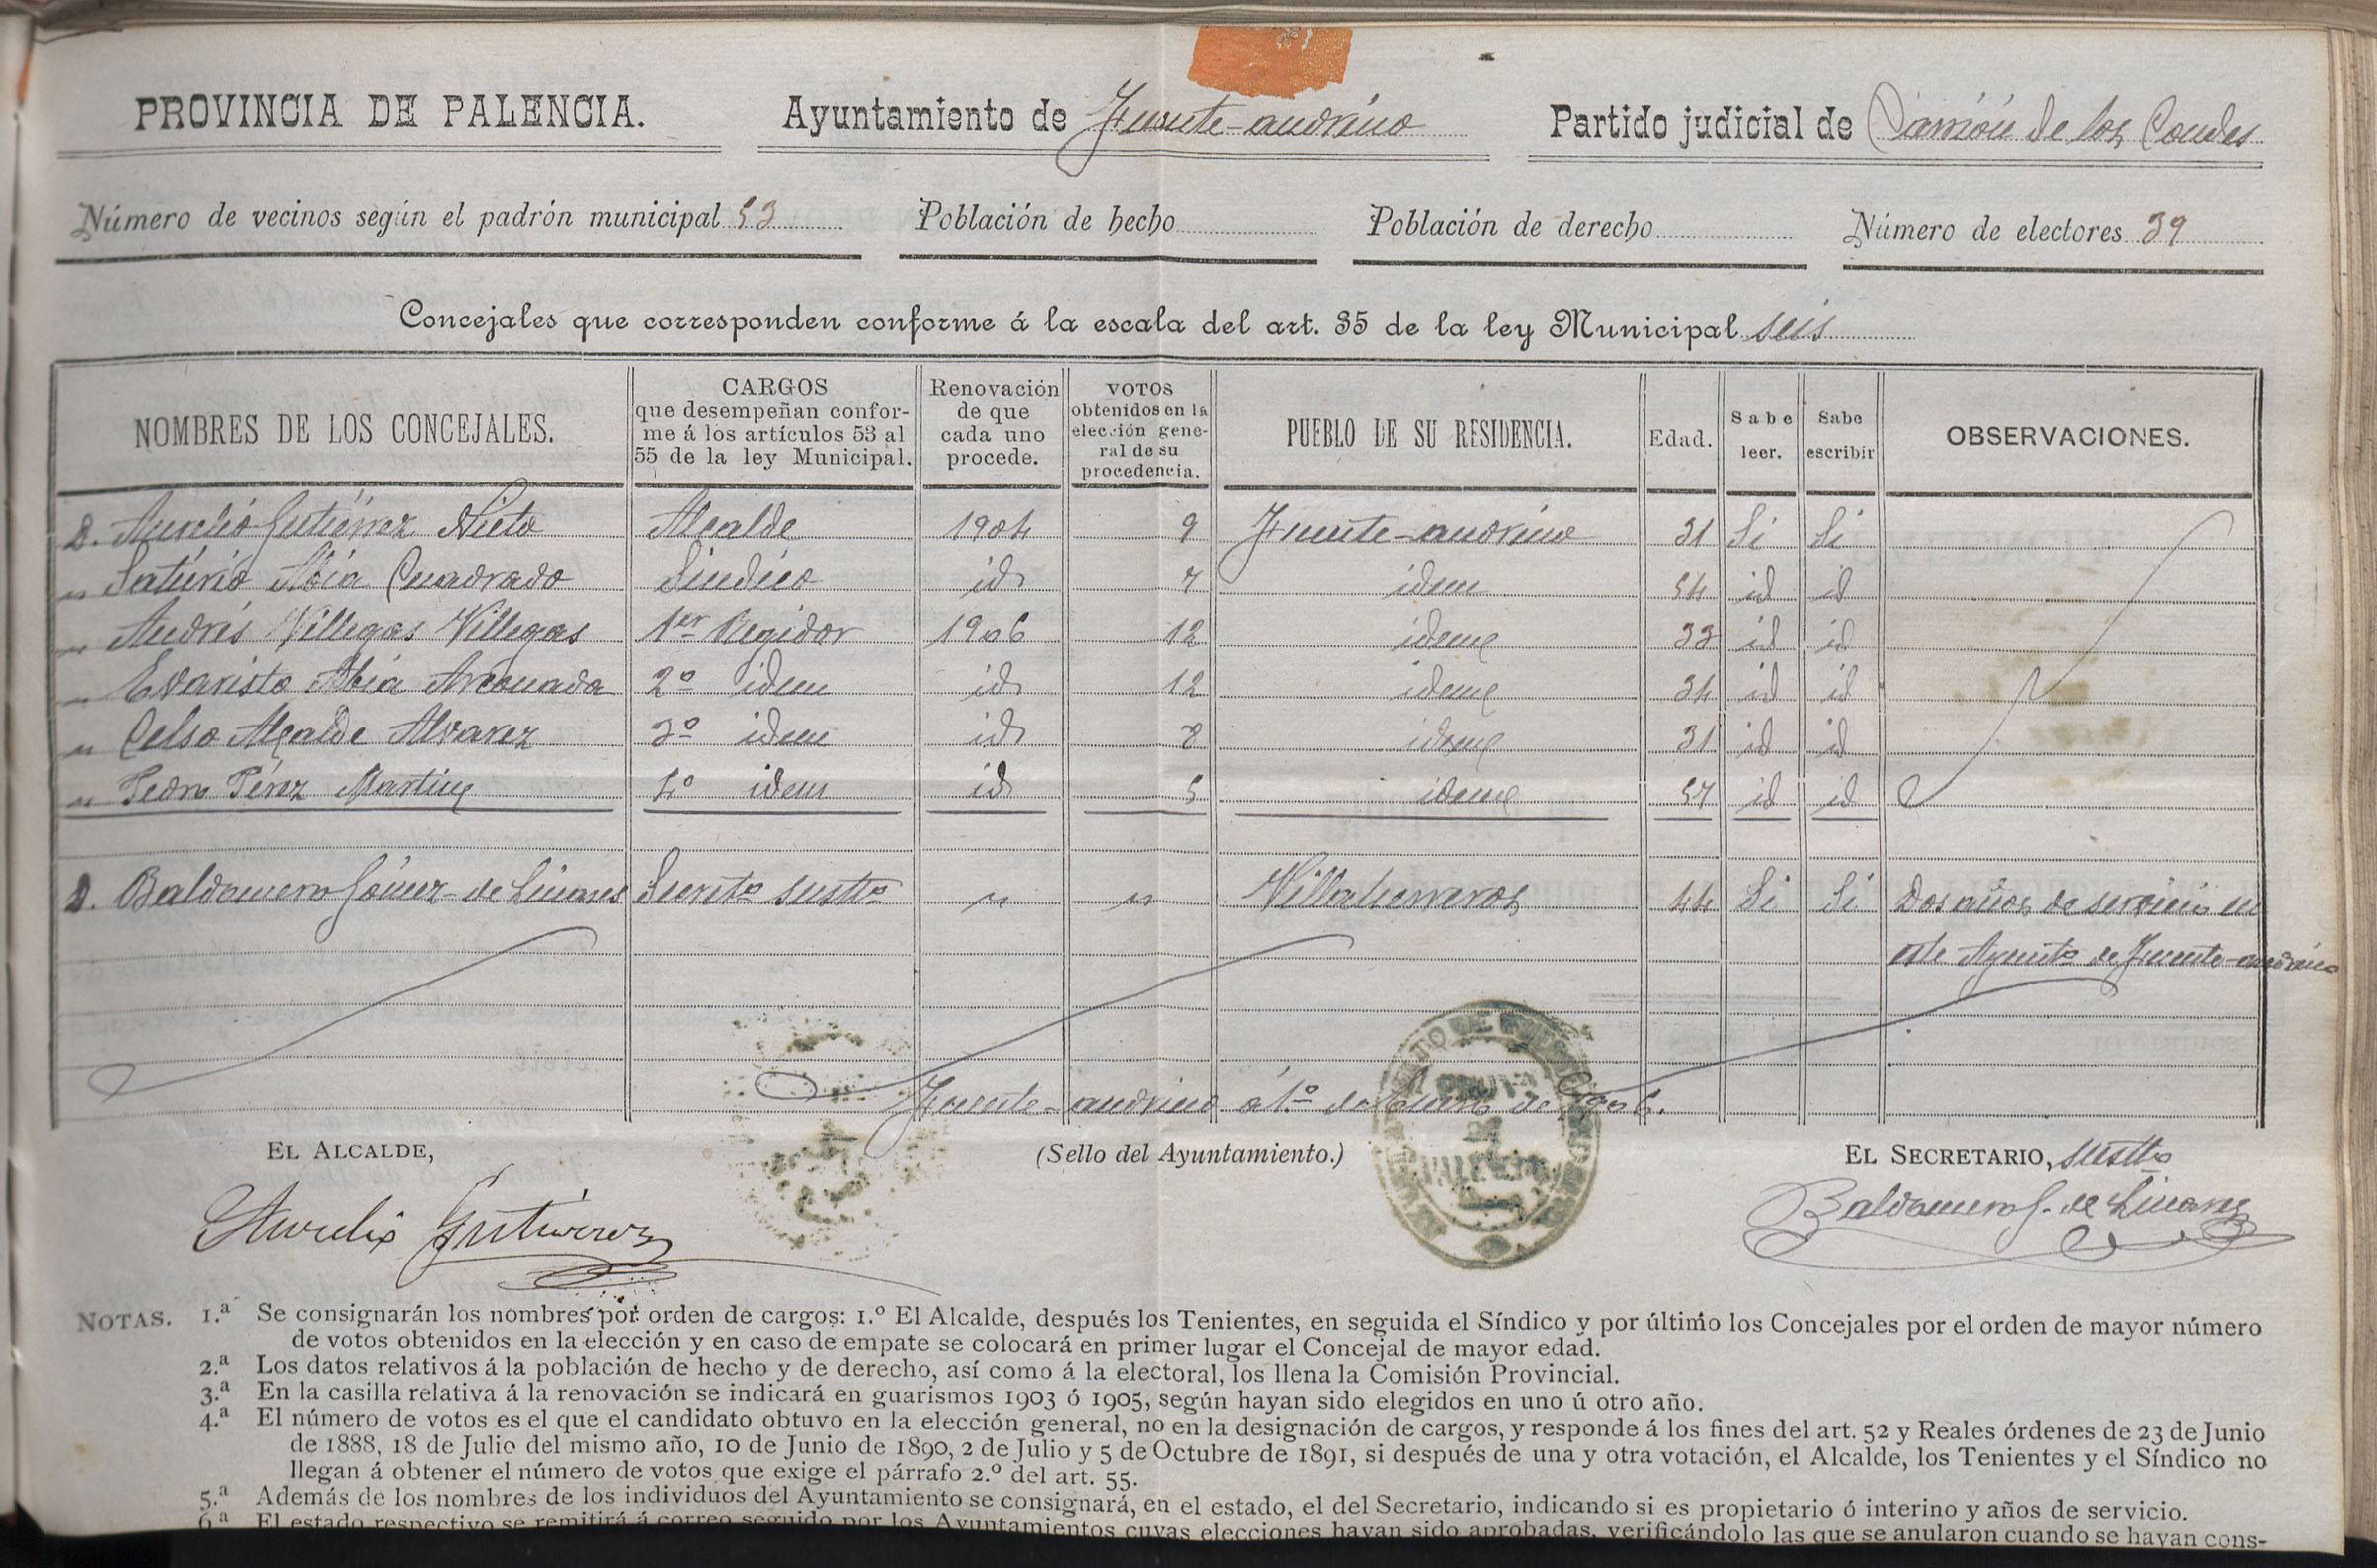 PROVINCIA DE PALENCIA. Ayuntamiento de Fuente-andrino Partido judicial de Carrión de los Condes
Número de vecinos según el padrón municipal 53 Población de hecho Población de derecho Número de electores 39
Concejales que corresponden conforme á la escala del art. 35 de la ley Municipal seis
NOMBRES DE LOS CONCEJALES. CARGOS que desempeñan conforme á los artículos 53 al 55 de la ley Municipal. Renovación de que cada uno procede. VOTOS obtenidos en la elección general de su procedencia. PUEBLO DE SU RESIDENCIA. Edad. Sabe leer. Sabe escribir OBSERVACIONES.
D. Aurelio Gutiérrez Nieto Alcalde 1904 9 Fuente-andrino 31 Si Si
" Saturio Abia Cuadrado Sindico id 7 idem 54 id id
" Andrés Villegas Villegas 1er Regidor 1906 12 idem 33 id id
" Evaristo Abia Arconada 2º idem id 12 idem 34 id id
" Celso Alcalde Alvarez 3º idem id 8 idem 31 id id
" Pedro Pérez Martin 4º idem id 5 idem 57 id id
D. Baldomero Gómez de Linares Secretº susttº " " Villaherreros 44 Si Si Dos años de servicio en
este Ayuntº de Fuente-andrino
Fuente-andrino á 1º de Enero de 1906.
EL ALCALDE, (Sello del Ayuntamiento.) EL SECRETARIO, susttº
Aurelio Gutierrez Baldomero G. de Linares
PALENCIA
NOTAS. 1.ª Se consignarán los nombres por orden de cargos: 1.º El Alcalde, después los Tenientes, en seguida el Síndico y por último los Concejales por el orden de mayor número
de votos obtenidos en la elección y en caso de empate se colocará en primer lugar el Concejal de mayor edad.
2.ª Los datos relativos á la población de hecho y de derecho, así como á la electoral, los llena la Comisión Provincial.
3.ª En la casilla relativa á la renovación se indicará en guarismos 1903 ó 1905, según hayan sido elegidos en uno ú otro año.
4.ª El número de votos es el que el candidato obtuvo en la elección general, no en la designación de cargos, y responde á los fines del art. 52 y Reales órdenes de 23 de Junio
de 1888, 18 de Julio del mismo año, 10 de Junio de 1890, 2 de Julio y 5 de Octubre de 1891, si después de una y otra votación, el Alcalde, los Tenientes y el Síndico no
llegan á obtener el número de votos que exige el párrafo 2.º del art. 55.
5.ª Además de los nombres de los individuos del Ayuntamiento se consignará, en el estado, el del Secretario, indicando si es propietario ó interino y años de servicio.
6.ª El estado respectivo se remitirá á correo seguido por los Ayuntamientos cuyas elecciones hayan sido aprobadas, verificándolo las que se anularon cuando se hayan cons-